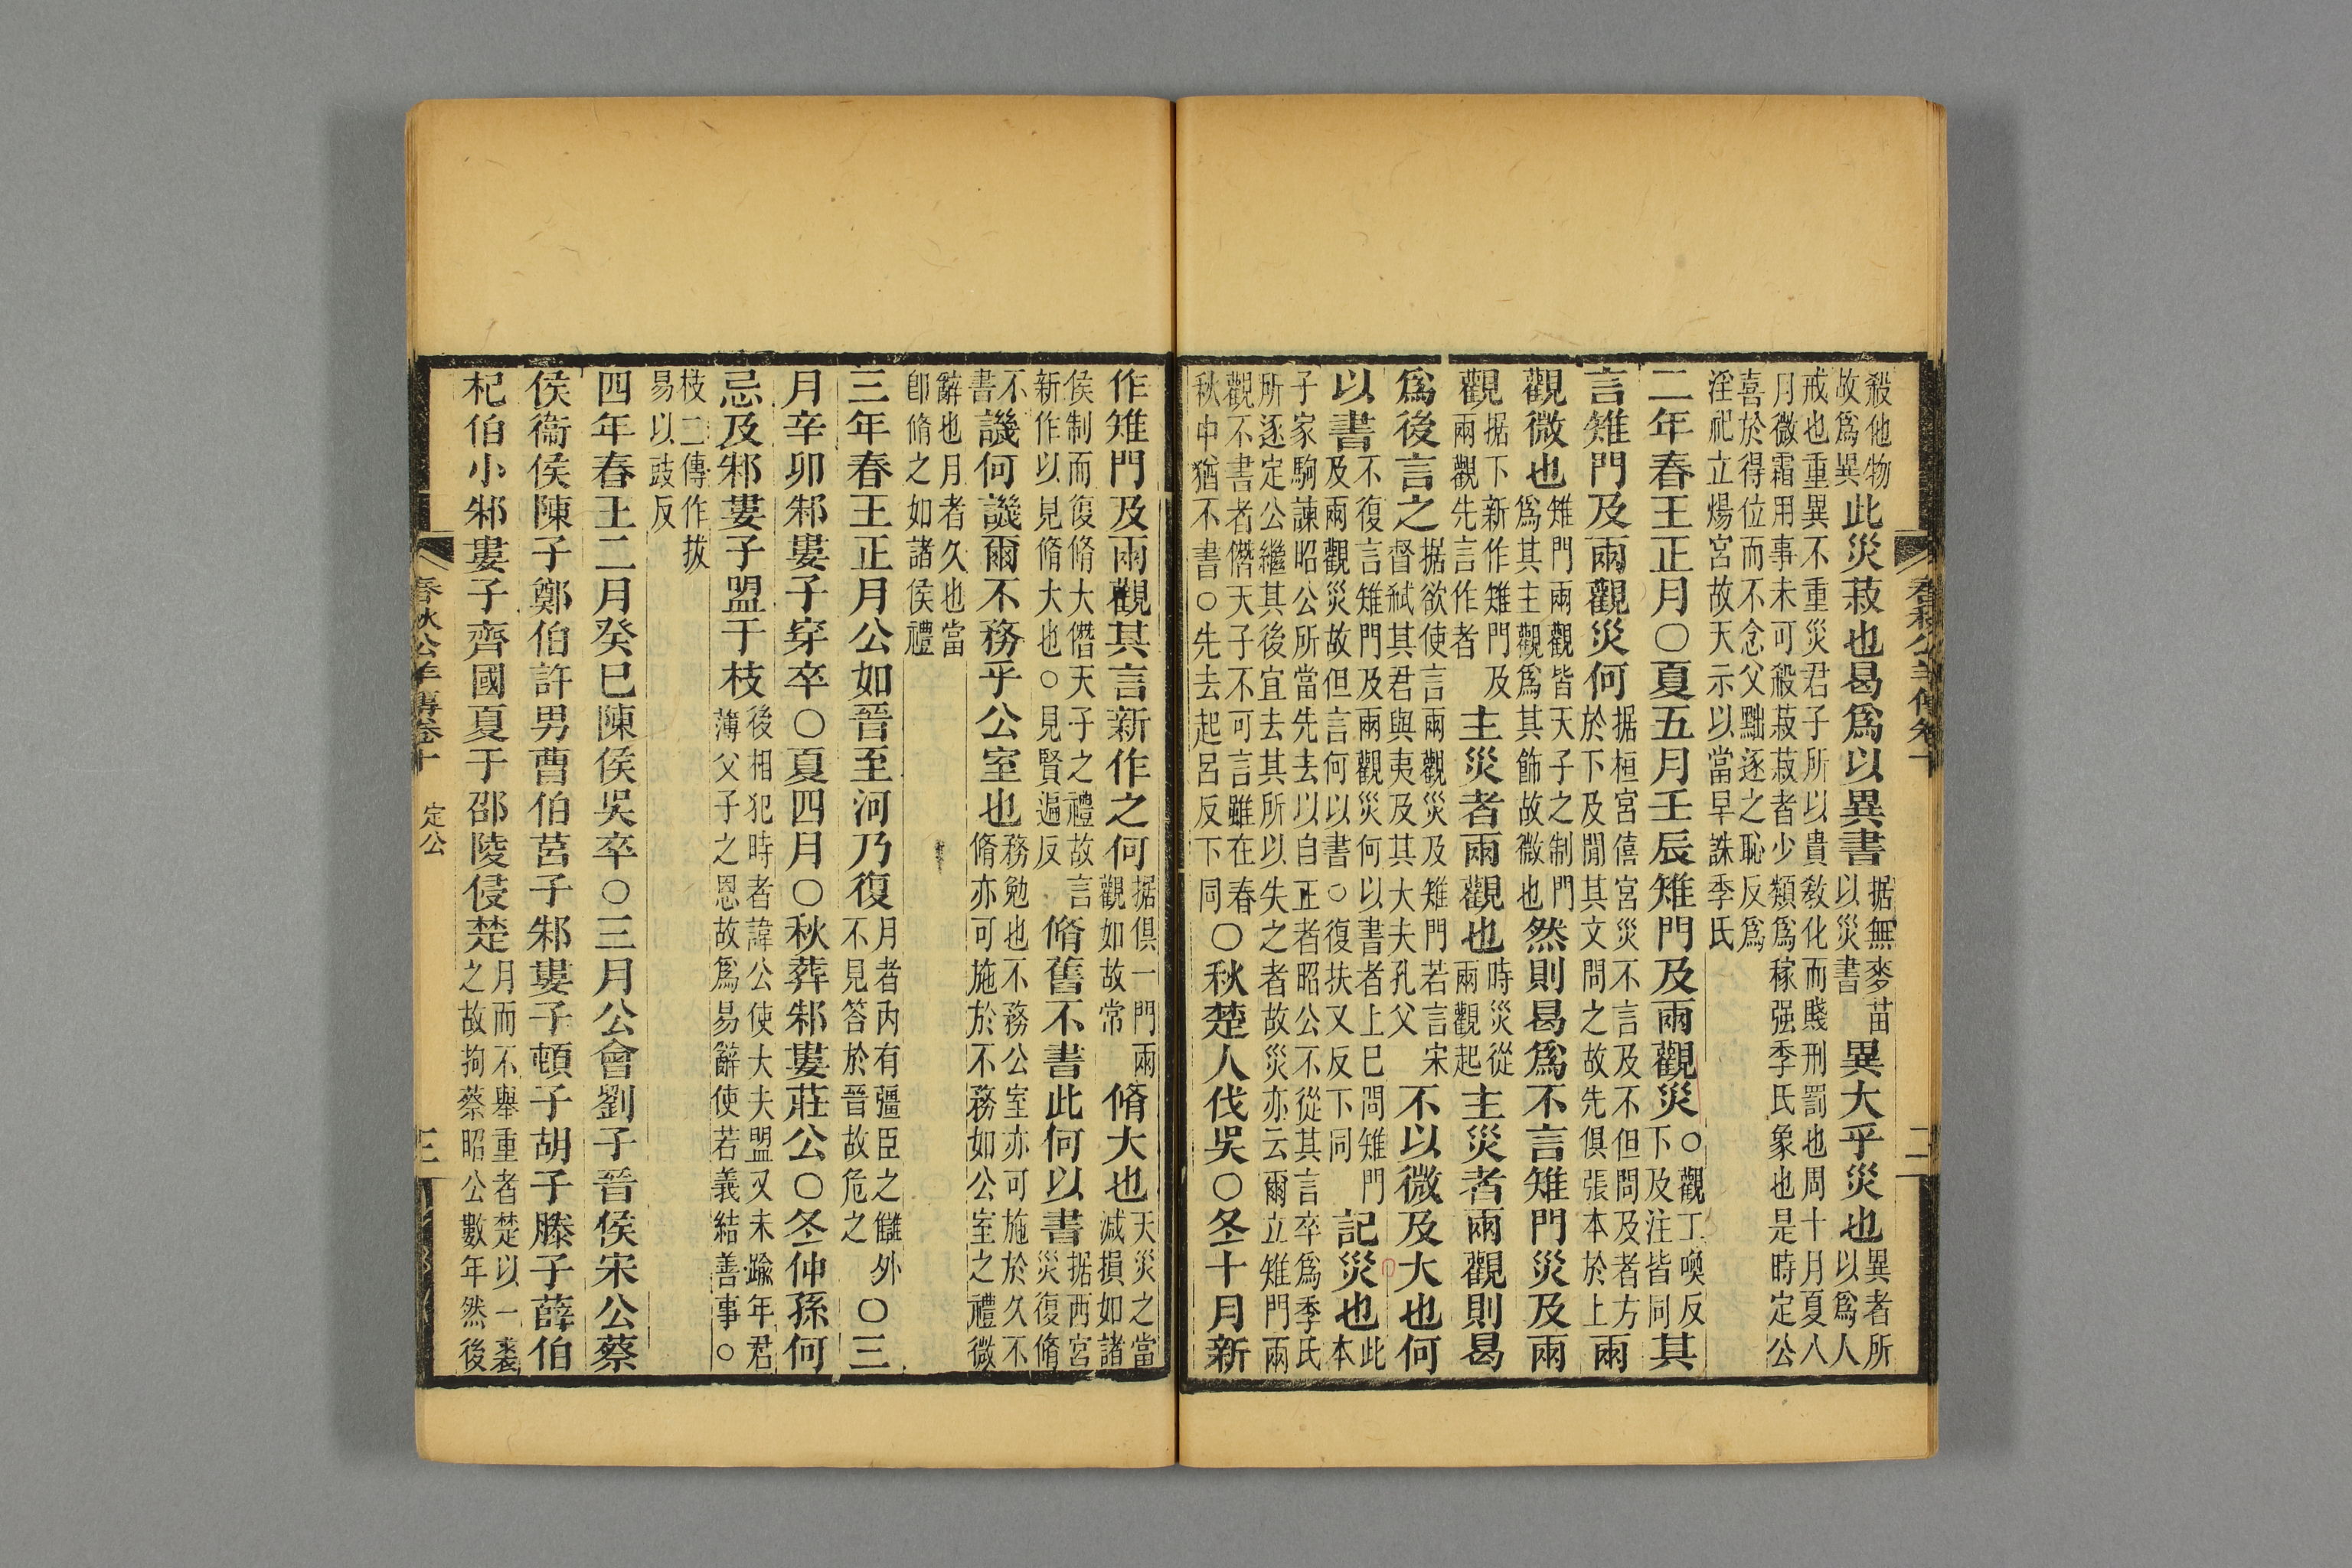 殺他物故爲異此災菽也曷爲以異書据無麥苗以災書異大乎災也異者所以爲人
戒也重異不重災君子所以貴敎化而賤刑罰也周十月夏八月微霜用事未可殺菽菽者少類爲稼强季氏象也是時定公
喜於得位而不念父黜逐之恥反爲淫祀立煬宮故天示以當早誅季氏
二年春王正月〇夏五月壬辰雉門及兩觀災〇觀工喚反下及注皆同其
言雉門及兩觀災何据桓宮僖宮災不言及不但問及者方於下及閒其文問之故先俱張本於上兩
觀微也雉門兩觀皆天子之制門爲其主觀爲其飾故微也然則曷爲不言雉門災及兩
觀据下新作雉門及兩觀先言作者主災者兩觀也時災從兩觀起主災者兩觀則曷
爲後言之据欲使言兩觀災及雉門若言宋督弒其君與夷及其大夫孔父不以微及大也何
以書不復言雉門及兩觀災何以書者上巳問雉門及兩觀災故但言何以書〇復扶又反下同記災也此本
子家駒諫昭公所當先去以自正者昭公不從其言卒爲季氏所逐定公繼其後宜去其所以失之者故災亦云爾立雉門兩
觀不書者僭天子不可言雖在春秋中猶不書〇先去起呂反下同〇秋楚人伐吳〇冬十月新
春秋公羊傳卷十
二
作雉門及兩觀其言新作之何据俱一門兩觀如故常脩大也天災之當減損如諸
侯制而復脩大僭天子之禮故言新作以見脩大也〇見賢遍反脩舊不書此何以書据西宮災復脩
不書譏何譏爾不務乎公室也務勉也不務公室亦可施於久不脩亦可施於不務如公室之禮微
辭也月者久也當卽脩之如諸侯禮
三年春王正月公如晉至河乃復月者內有彊臣之讎外不見答於晉故危之〇三
月辛卯邾婁子穿卒〇夏四月〇秋葬邾婁莊公〇冬仲孫何
忌及邾婁子盟于枝後相犯時者諱公使大夫盟又未踰年君薄父子之恩故爲易辭使若義結善事〇
枝二傳作拔易以豉反
四年春王二月癸巳陳侯吳卒〇三月公會劉子晉侯宋公蔡
侯衞侯陳子鄭伯許男曹伯莒子邾婁子頓子胡子滕子薛伯
杞伯小邾婁子齊國夏于邵陵侵楚月而不舉重者楚以一裘之故拘蔡昭公數年然後
春秋公羊傳卷十
定公
三